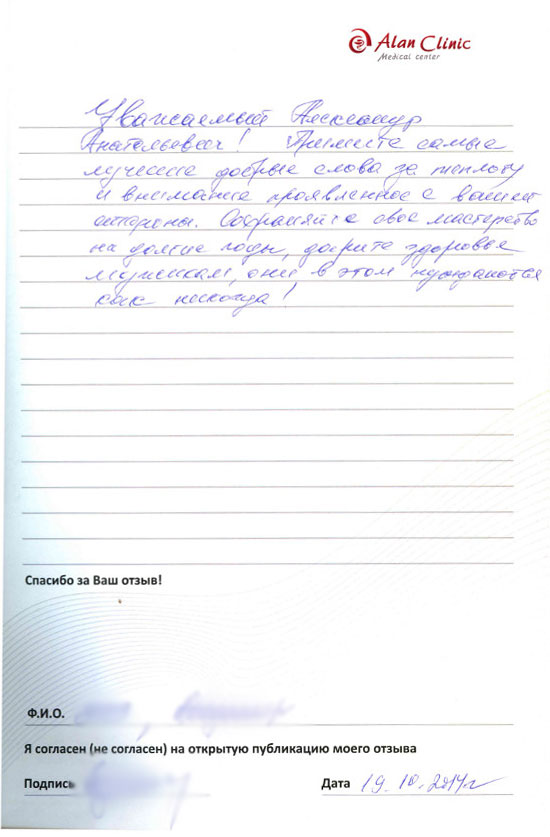 Alan Clinic
Medical center
Уважаемый Александр
Анатольевич! Примите самые
лучшие добрые слова за теплоту
и внимание проявленное с вашей
стороны. Сохраняйте свое мастерство
на долгие годы, дарите здоровье
мужчинам, они в этом нуждаются
как никогда!
Спасибо за Ваш отзыв!
Ф.И.О.
Я согласен (не согласен) на открытую публикацию моего отзыва
Подпись Дата 19.10.2014г